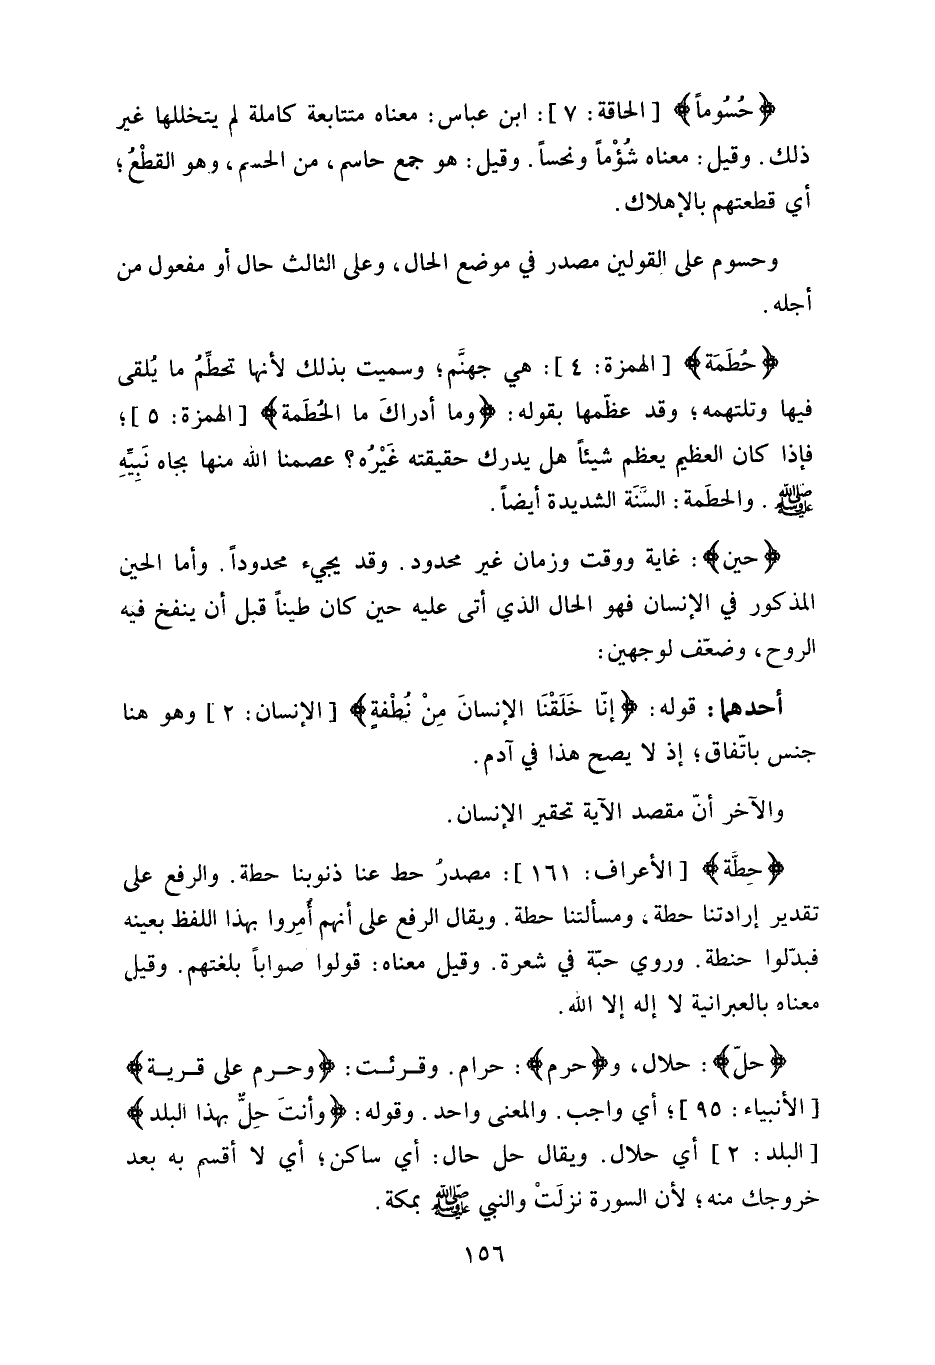 ﴿حُسُوماً﴾ [الحاقة: ٧]: ابن عباس: معناه متتابعة كاملة لم يتخللها غير
ذلك. وقيل: معناه شُؤْماً ونحساً. وقيل: هو جمع حاسم، من الحسم، وهو القطْعُ؛
أي قطعتهم بالإهلاك.
وحسوم على القولين مصدر في موضع الحال، وعلى الثالث حال أو مفعول من
أجله.
﴿حُطَمَة﴾ [الهمزة: ٤]: هي جهنَّم؛ وسميت بذلك لأنها تحطِّمُ ما يُلقى
فيها وتلتهمه؛ وقد عظّمها بقوله: ﴿وما أدراكَ ما الحُطَمة﴾ [الهمزة: ٥]؛
فإذا كان العظيم يعظم شيئاً هل يدرك حقيقته غَيْرُه؟ عصمنا الله منها بجاه نَبِيِّهِ
ﷺ. والحطَمة: السَّنَة الشديدة أيضاً.
﴿حين﴾: غاية ووقت وزمان غير محدود. وقد يجيء محدوداً. وأما الحين
المذكور في الإنسان فهو الحال الذي أتى عليه حين كان طيناً قبل أن ينفخ فيه
الروح، وضعّف لوجهين:
أحدهما: قوله: ﴿إنّا خَلَقْنَا الإنسانَ مِنْ نُطْفةٍ﴾ [الإنسان: ٢] وهو هنا
جنس باتّفاق؛ إذ لا يصح هذا في آدم.
والآخر أنّ مقصد الآية تحقير الإنسان.
﴿حِطَّة﴾ [الأعراف: ١٦١]: مصدرُ حط عنا ذنوبنا حطة. والرفع على
تقدير إرادتنا حطة، ومسألتنا حطة. ويقال الرفع على أنهم أُمِروا بهذا اللفظ بعينه
فبدّلوا حنطة. وروي حبّة في شعرة. وقيل معناه: قولوا صواباً بلغتهم. وقيل
معناه بالعبرانية لا إله إلا الله.
﴿حلّ﴾: حلال، و﴿حرم﴾: حرام. وقرئت: ﴿وحرم على قرية﴾
[الأنبياء: ٩٥]؛ أي واجب. والمعنى واحد. وقوله: ﴿وأنتَ حِلٌّ بهذا البلد﴾
[البلد: ٢] أي حلال. ويقال حل حال: أي ساكن؛ أي لا أقسم به بعد
خروجك منه؛ لأن السورة نزلَتْ والنبي ﷺ بمكة.
١٥٦